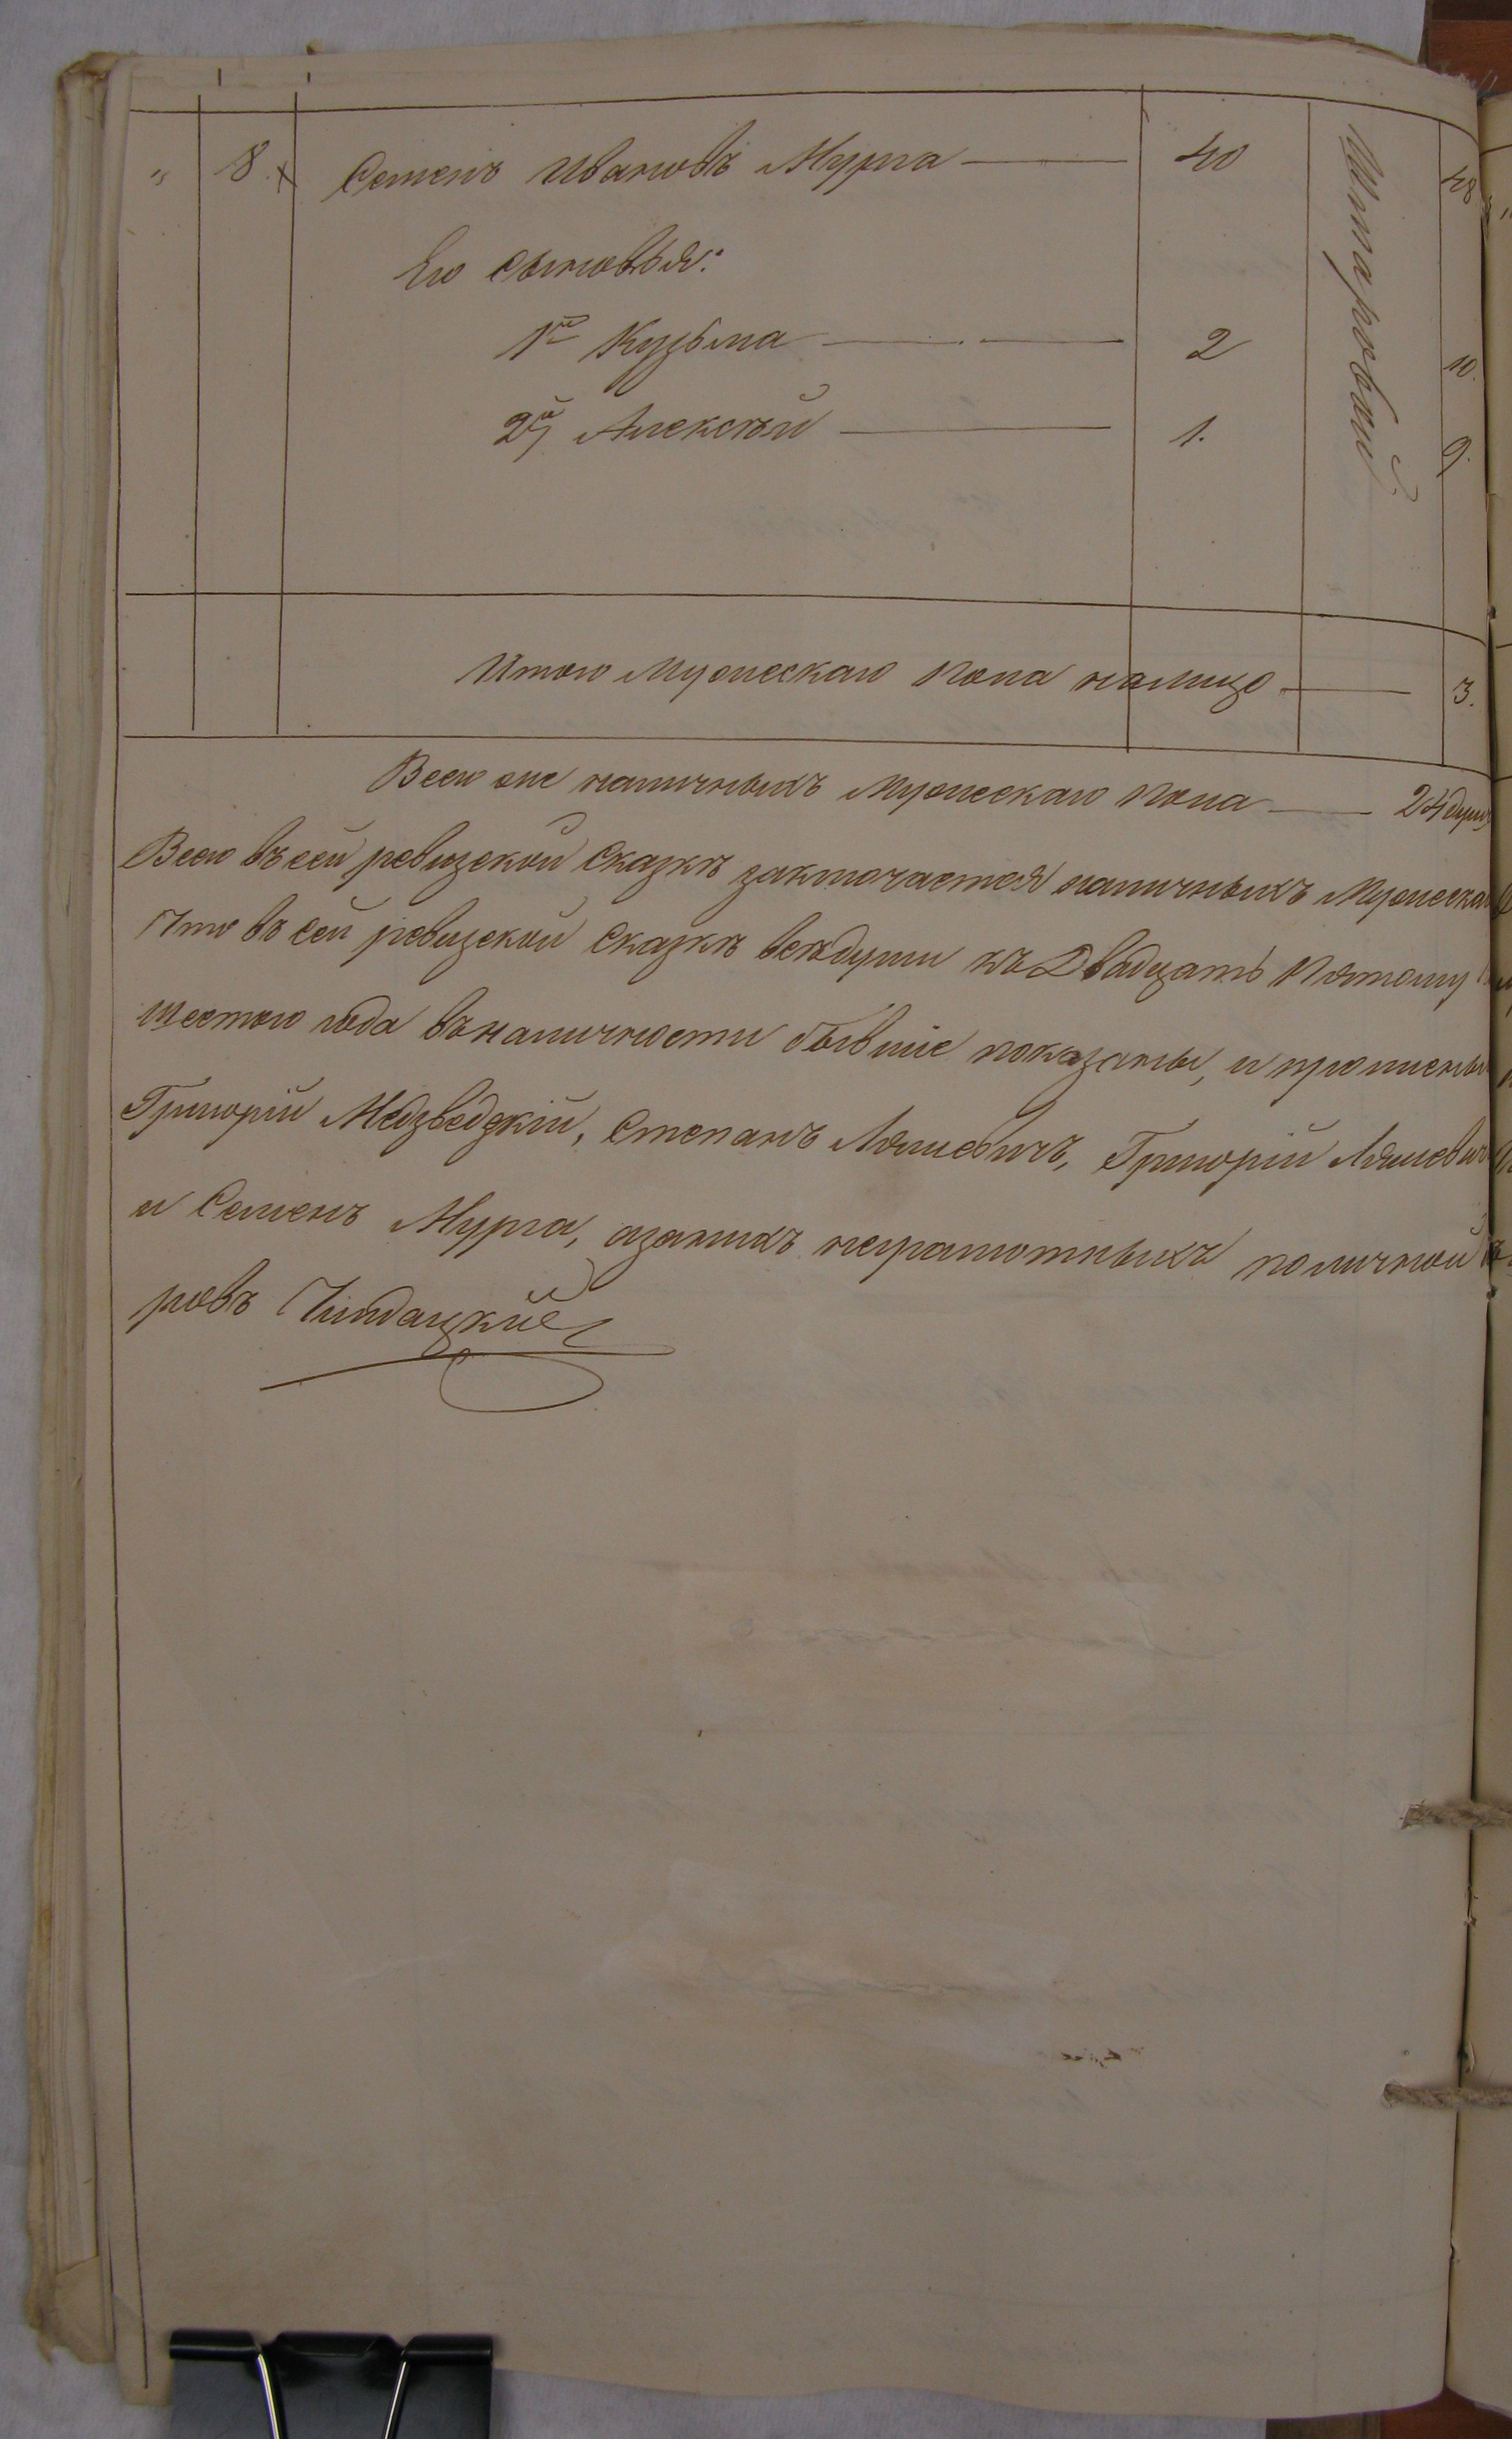 " 8. Семенъ Ивановъ Мурга — 40 48
Его сыновья:
1й Кузьма — 2 10.
2й Алексѣй — 1. 9.
Итого Мужескаго пола налицо — 3.
Всего же наличныхъ Мужескаго пола — 24 душ
Всего въ сей ревизской Сказкѣ заключается наличныхъ Мужеска
Что въ сей ревизской Сказкѣ всѣ души къ Двадцать Пятому
шестого года въ наличности бывшіе показаны, и прописны
Григорій Медзведзкій, Степанъ Ляшевичъ, Григорій Ляшевич
и Семенъ Мурга, а за нихъ неграмотныхъ по личной
ровъ